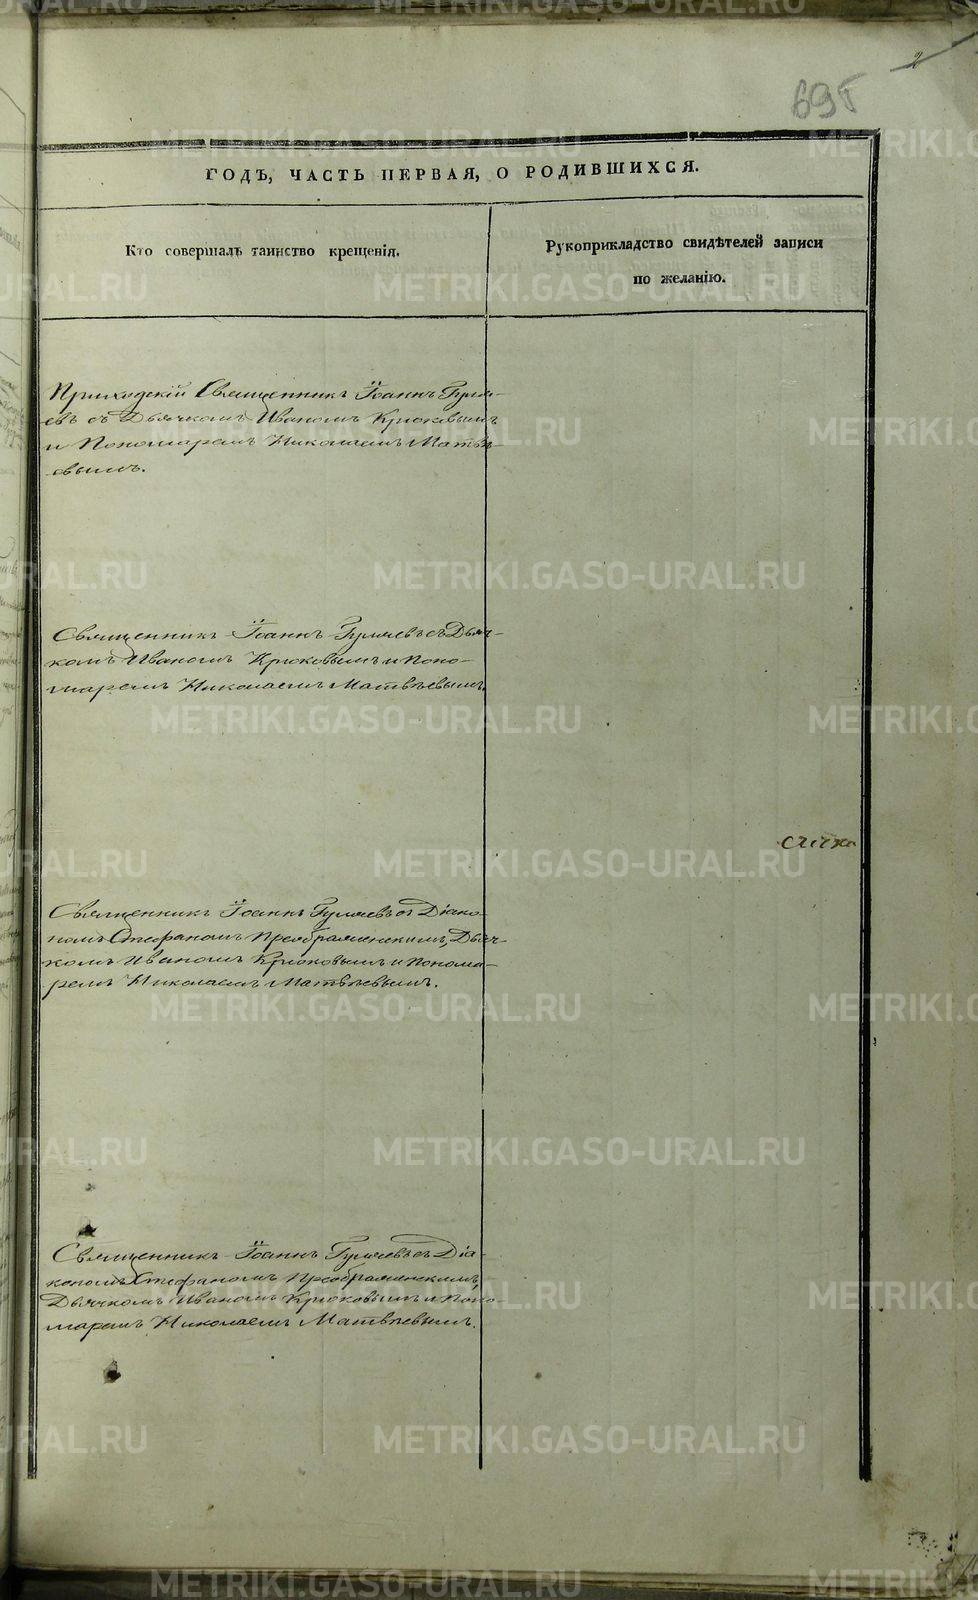 2
695
ГОДЪ, ЧАСТЬ ПЕРВАЯ, О РОДИВШИХСЯ.
Кто совершалъ таинство крещенія.
Рукоприкладство свидѣтелей записи
по желанію.
Приходскій Священникъ Іоаннъ Гуля-
евъ съ Дьячкомъ Иваномъ Крюковымъ
и Пономаремъ Николаемъ Матвѣ-
евымъ.
Священникъ Іоаннъ Гуляевъ съ Дьяч-
комъ Иваномъ Крюковымъ и Поно-
маремъ Николаемъ Матвѣевымъ.
Священникъ Іоаннъ Гуляевъ съ Діако-
номъ Стефаномъ Преображенскимъ, Дьяч-
комъ Иваномъ Крюковымъ и Понома-
ремъ Николаемъ Матвѣевымъ.
Священникъ Іоаннъ Гуляевъ съ Діа-
кономъ Стефаномъ Преображенскимъ,
Дьячкомъ Иваномъ Крюковымъ и Поно-
маремъ Николаемъ Матвѣевымъ.
METRIKI.GASO-URAL.RU